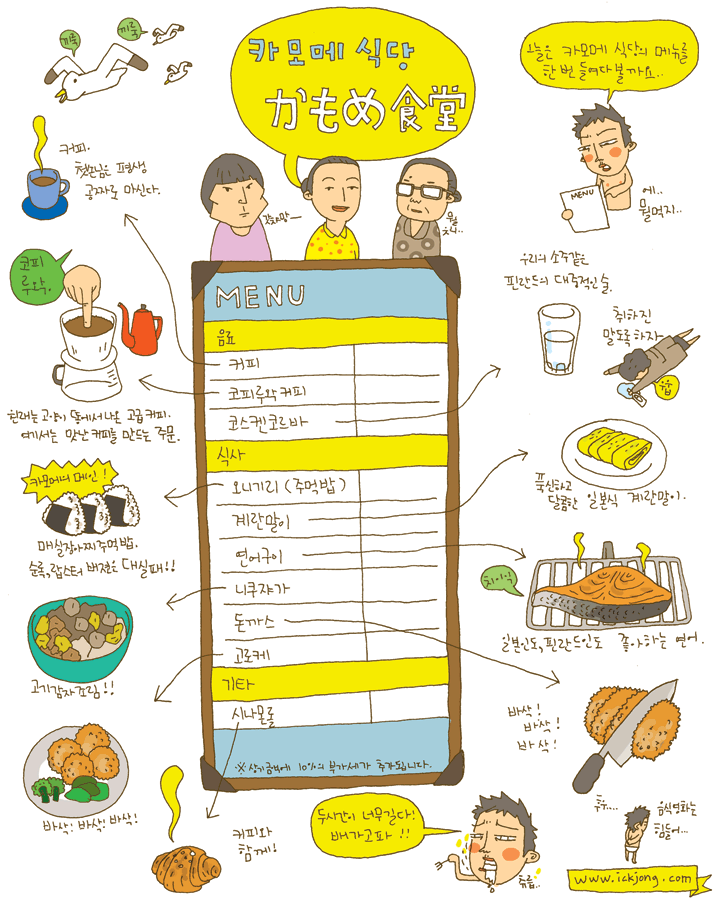 끼룩
끼룩
카모메 식당
かもめ食堂
오늘은 카모메 식당의 메뉴를
한번 들여다 볼까요..
MENU
에..
뭘먹지..
커피.
첫손님은 평생
공짜로 마신다.
코피
루왁.
원래는 고양이 똥에서 나온 고급 커피.
여기서는 맛난 커피를 만드는 주문.
카모메의 메인!
매실장아찌 주먹밥.
순록, 랍스터 버젼은 대실패!!
고기감자조림!!
바삭! 바삭! 바삭!
MENU
음료
커피
코피루왁 커피
코스켄코르바
식사
오니기리 (주먹밥)
계란말이
연어구이
니쿠쟈가
돈까스
고로케
기타
시나몬롤
※ 상기금액에 10%의 부가세가 추가됩니다.
우리의 소주같은
핀란드의 대중적인 술.
취하진
말도록 하자
우웁
푹신하고
달콤한 일본식 계란말이.
치이익
일본인도, 핀란드인도 좋아하는 연어.
바삭!
바삭!
바삭!
커피와
함께!
두시간이 너무길다!
배가고파 !!
츄릅..
후우....
음식영화는
힘들어...
www.ickjong.com